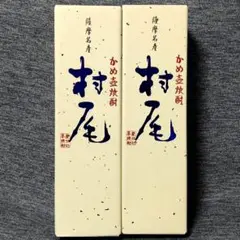 薩摩名産
かめ壺焼酎
村尾
薩摩名産
かめ壺焼酎
村尾